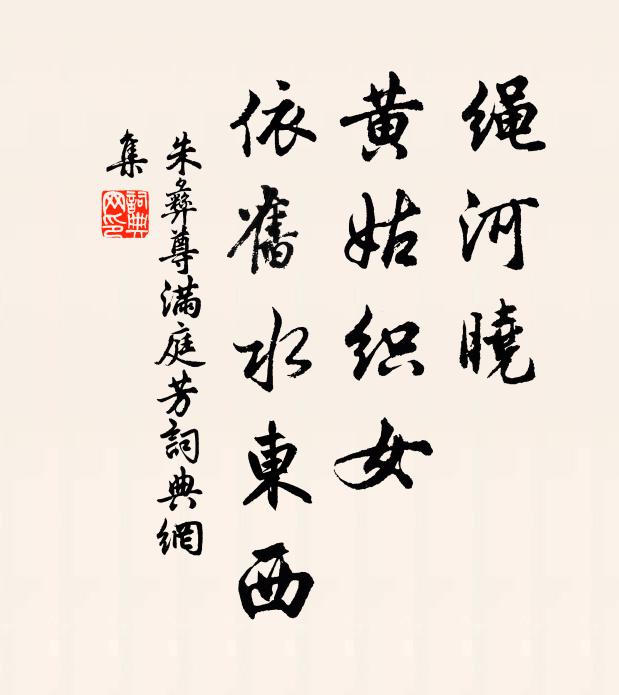 绳河曉
黄姑织女
依舊水東西
朱彝尊滿庭芳詞典網
集
詞典
网印